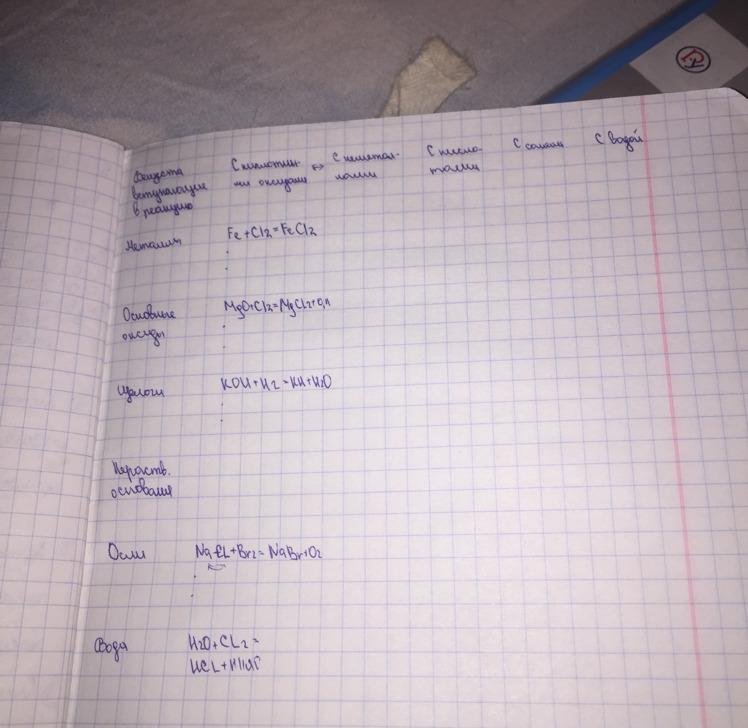 Вещества вступающие в реакцию
С кислотны-ми оксидами ↔ С неметал-лами
С кисло-тами
С солями
С водой
Металлы
Fe + Cl2 = FeCl2
Основные оксиды
MgO+Cl2=MgCl2+
Щелочи
KOH+H2=KH+H2O
Нераств. основания
Соли
NaCL+Br2=NaBr+O2
Вода
H2O+CL2=
HCL+